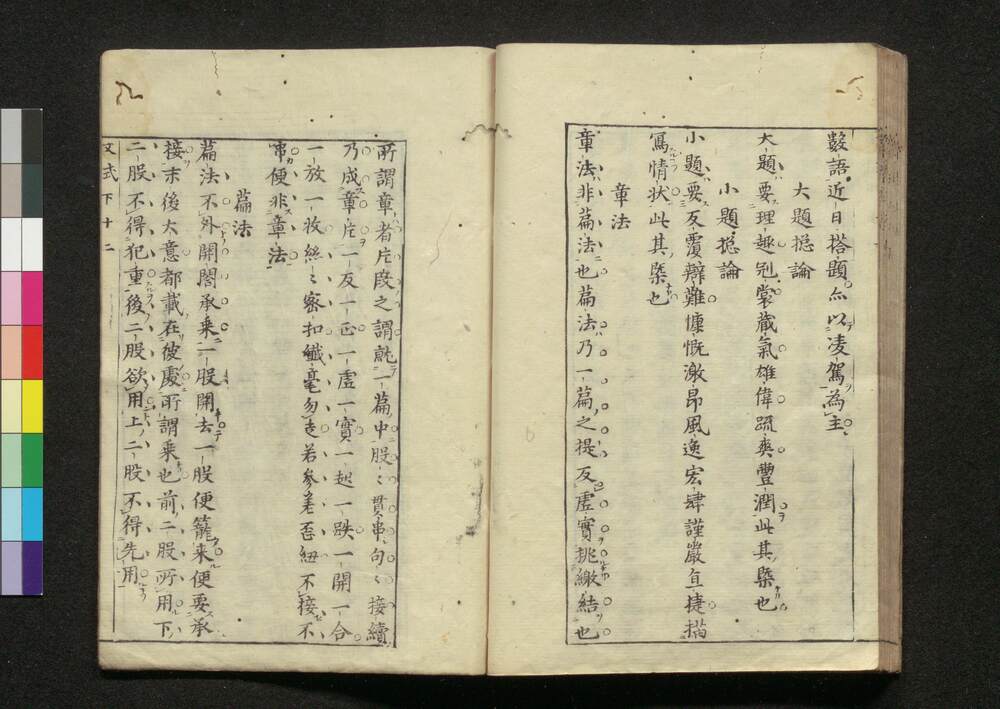 數語近日搭題亦以凌駕為主
大題摠論
大題要理趣冠裳蔵氣雄偉疏爽豐潤此其槩也
小題摠論
小題要反覆辯難慷慨激昂風逸宏肆謹嚴直捷描
寫情状此其槩也
章法
章法非篇法也篇法乃一篇之提反虛實挑繳結也
所謂章者片段之謂就一篇中股〻貫串句〻接續
乃成章片一反一正一虛一實一起一跌一開一合
一放一收絲〻密扣纎毫勿走若參差歪紐不接不
串便非章法
篇法
篇法不外開闔承乗二股開去一股便籠来便要承
接末後大意都載在彼處所謂乗也前二股所用下
二股不得犯重後二股欲用上二股不得先用
文式 下十二